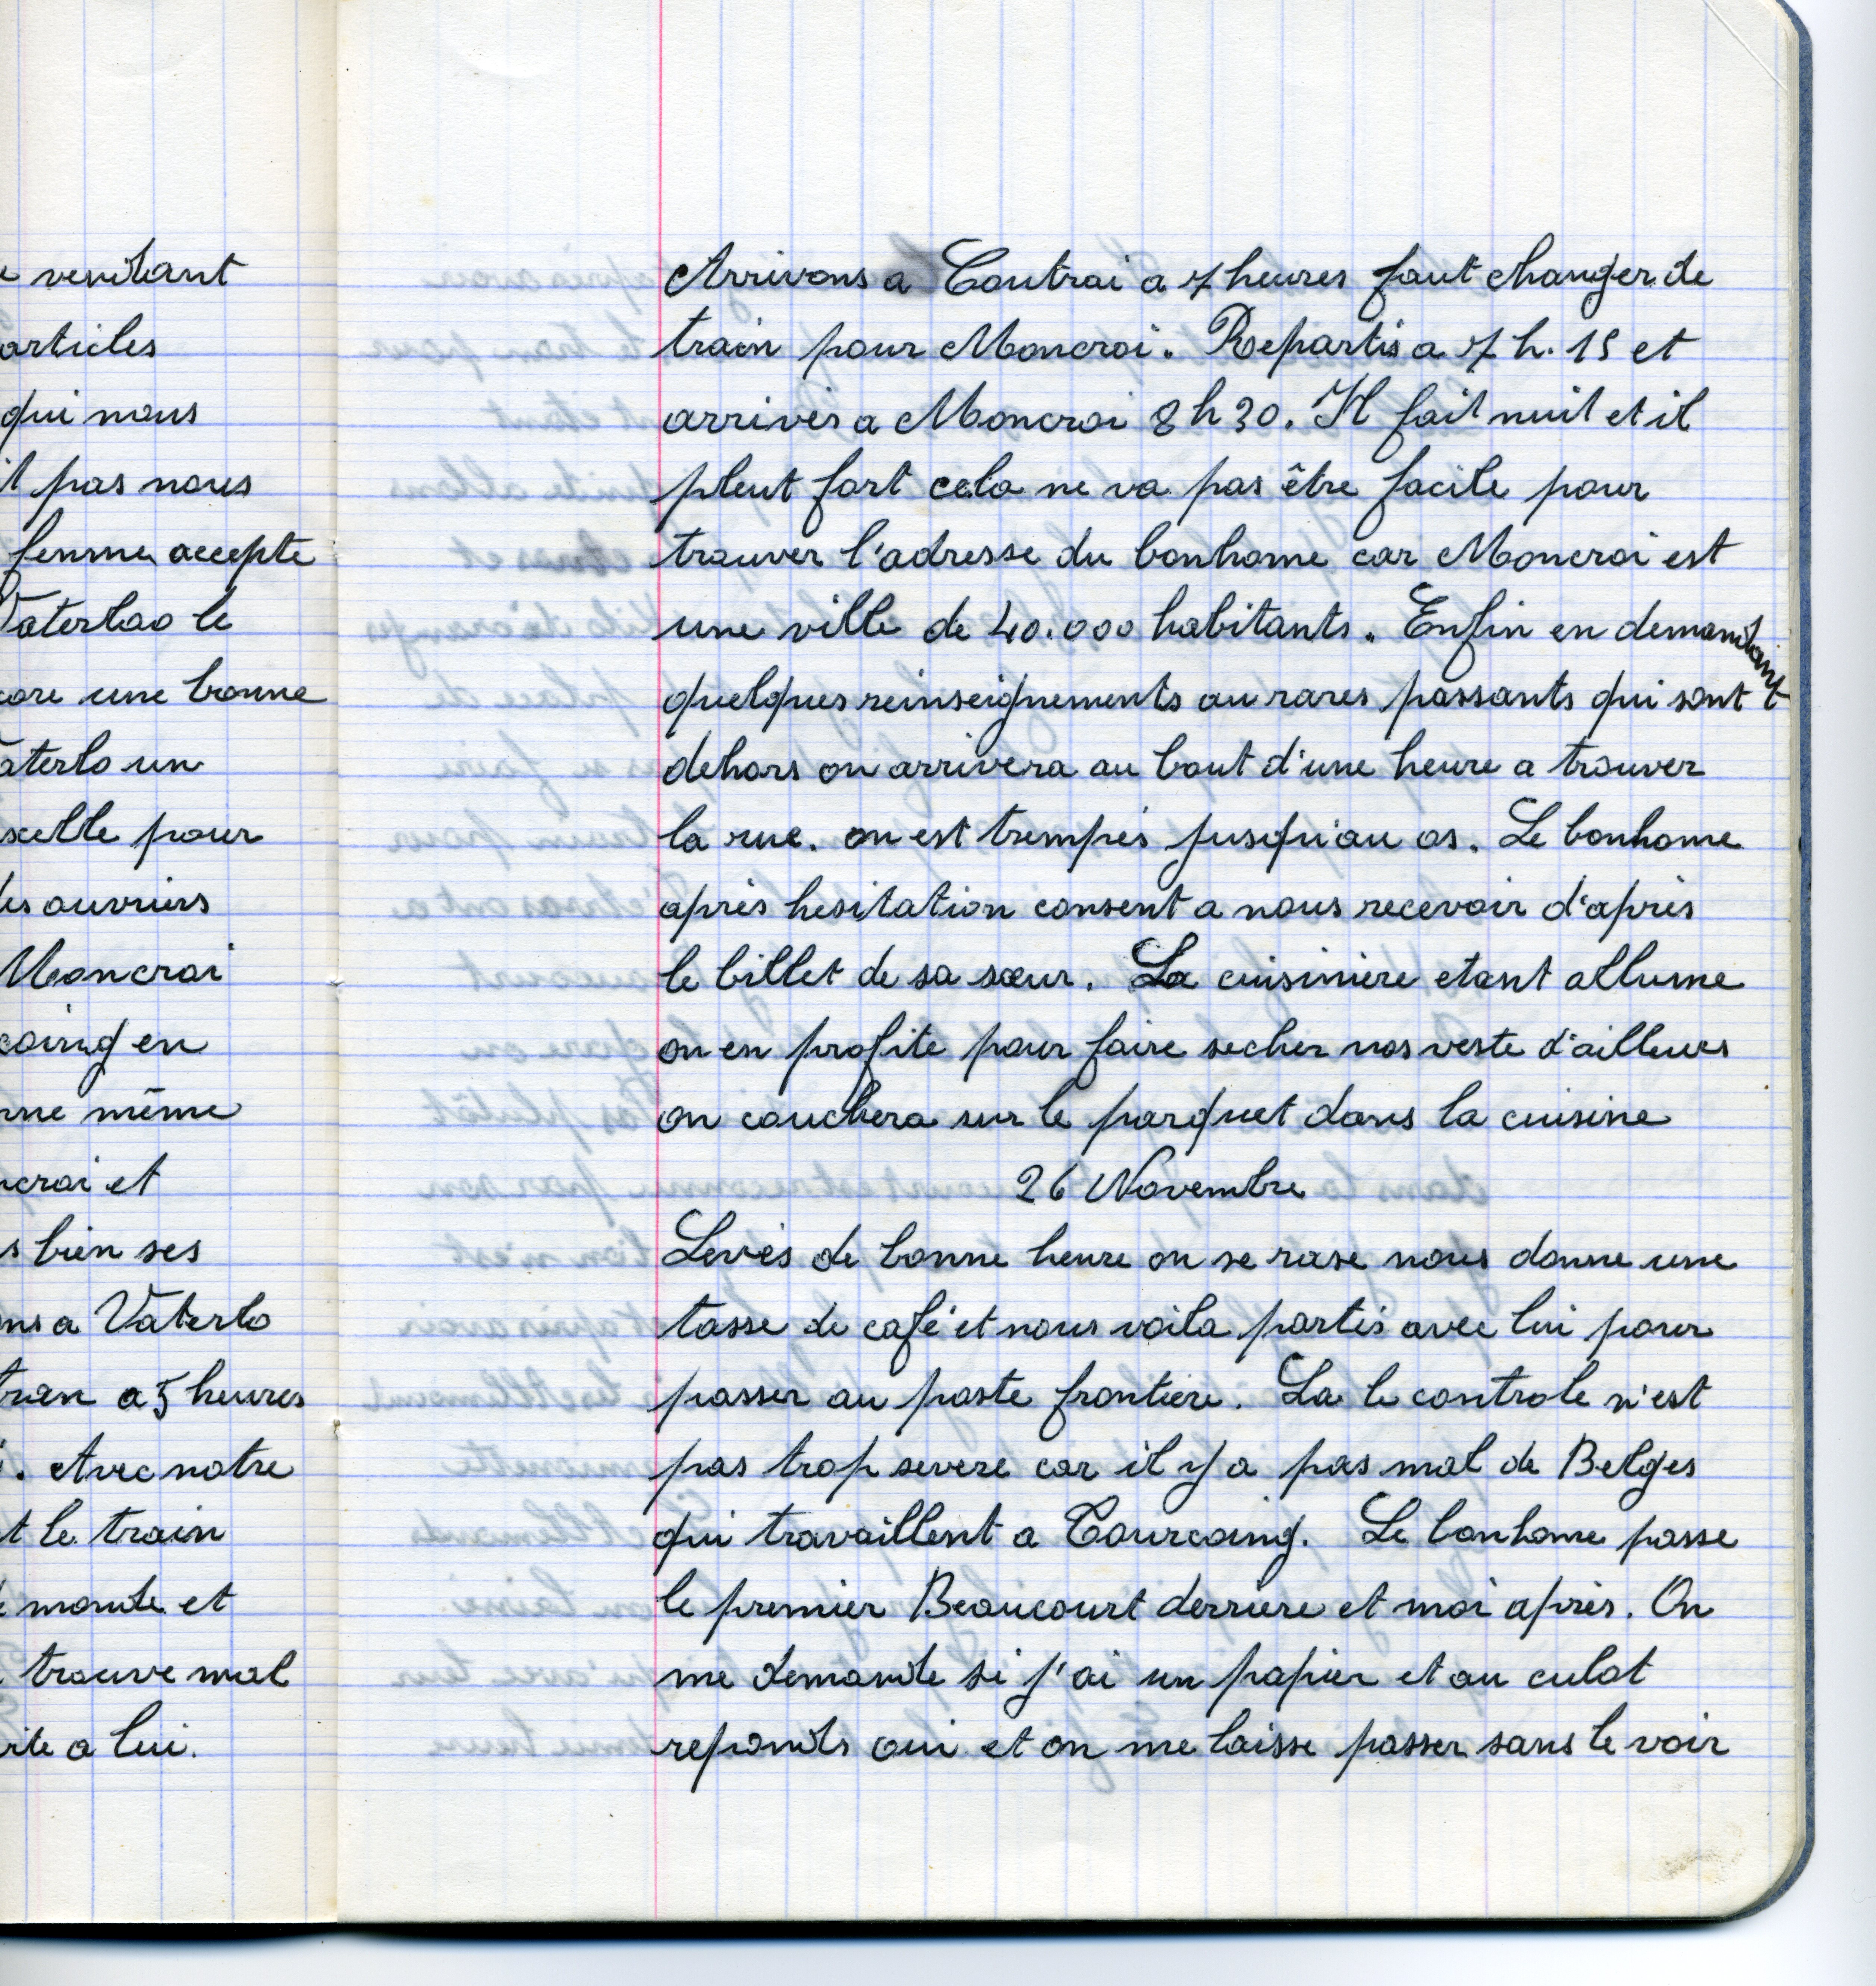 venitant
articles
qui nous
pas nous
femme accepte
Vaterloo le
une bonne
un
pour
ouvriers
Moncroi
en
même
et
bien ses
a Vaterlo
a 5 heures
. Avec notre
le train
monde et
trouve mal
a lui.
Arrivons a Coutrai a 7 heures faut changer de
train pour Moncroi. Repartis a 7 h. 15 et
arrivés a Moncroi 8 h 30. Il fait nuit et il
pleut fort cela ne va pas être facile pour
trouver l'adresse du bonhome car Moncroi est
une ville de 40.000 habitants. Enfin en demandant
quelques reinseignements au rares passants qui sont
dehors on arrivera au bout d'une heure a trouver
la rue. on est trempés jusqu'au os. Le bonhome
après hesitation consent a nous recevoir d'après
le billet de sa sœur. La cuisiniere etant allume
on en profite pour faire secher nos veste d'ailleurs
on couchera sur le parquet dans la cuisine
26 Novembre
Levés de bonne heure on se rase nous donne une
tasse de café et nous voila partis avec lui pour
passer au poste frontiere. La le controle n'est
pas trop severe car il y a pas mal de Belges
qui travaillent a Tourcoing. Le bonhome passe
le premier Beaucourt derriere et moi après. On
me demande si j'ai un papier et au culot
reponds oui et on me laisse passer sans le voir